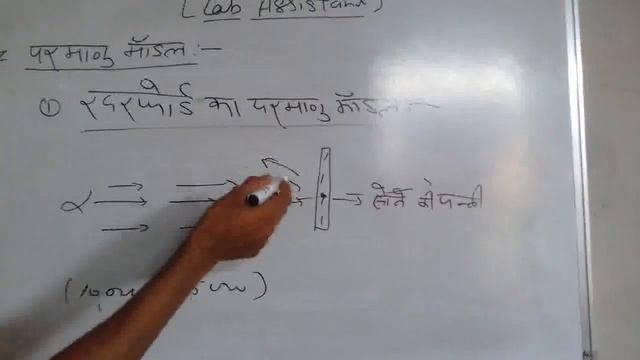 (Lab Assistant)
परमाणु मॉडल :-
① रदरफोर्ड का परमाणु मॉडल :-
α → सोने की पन्नी